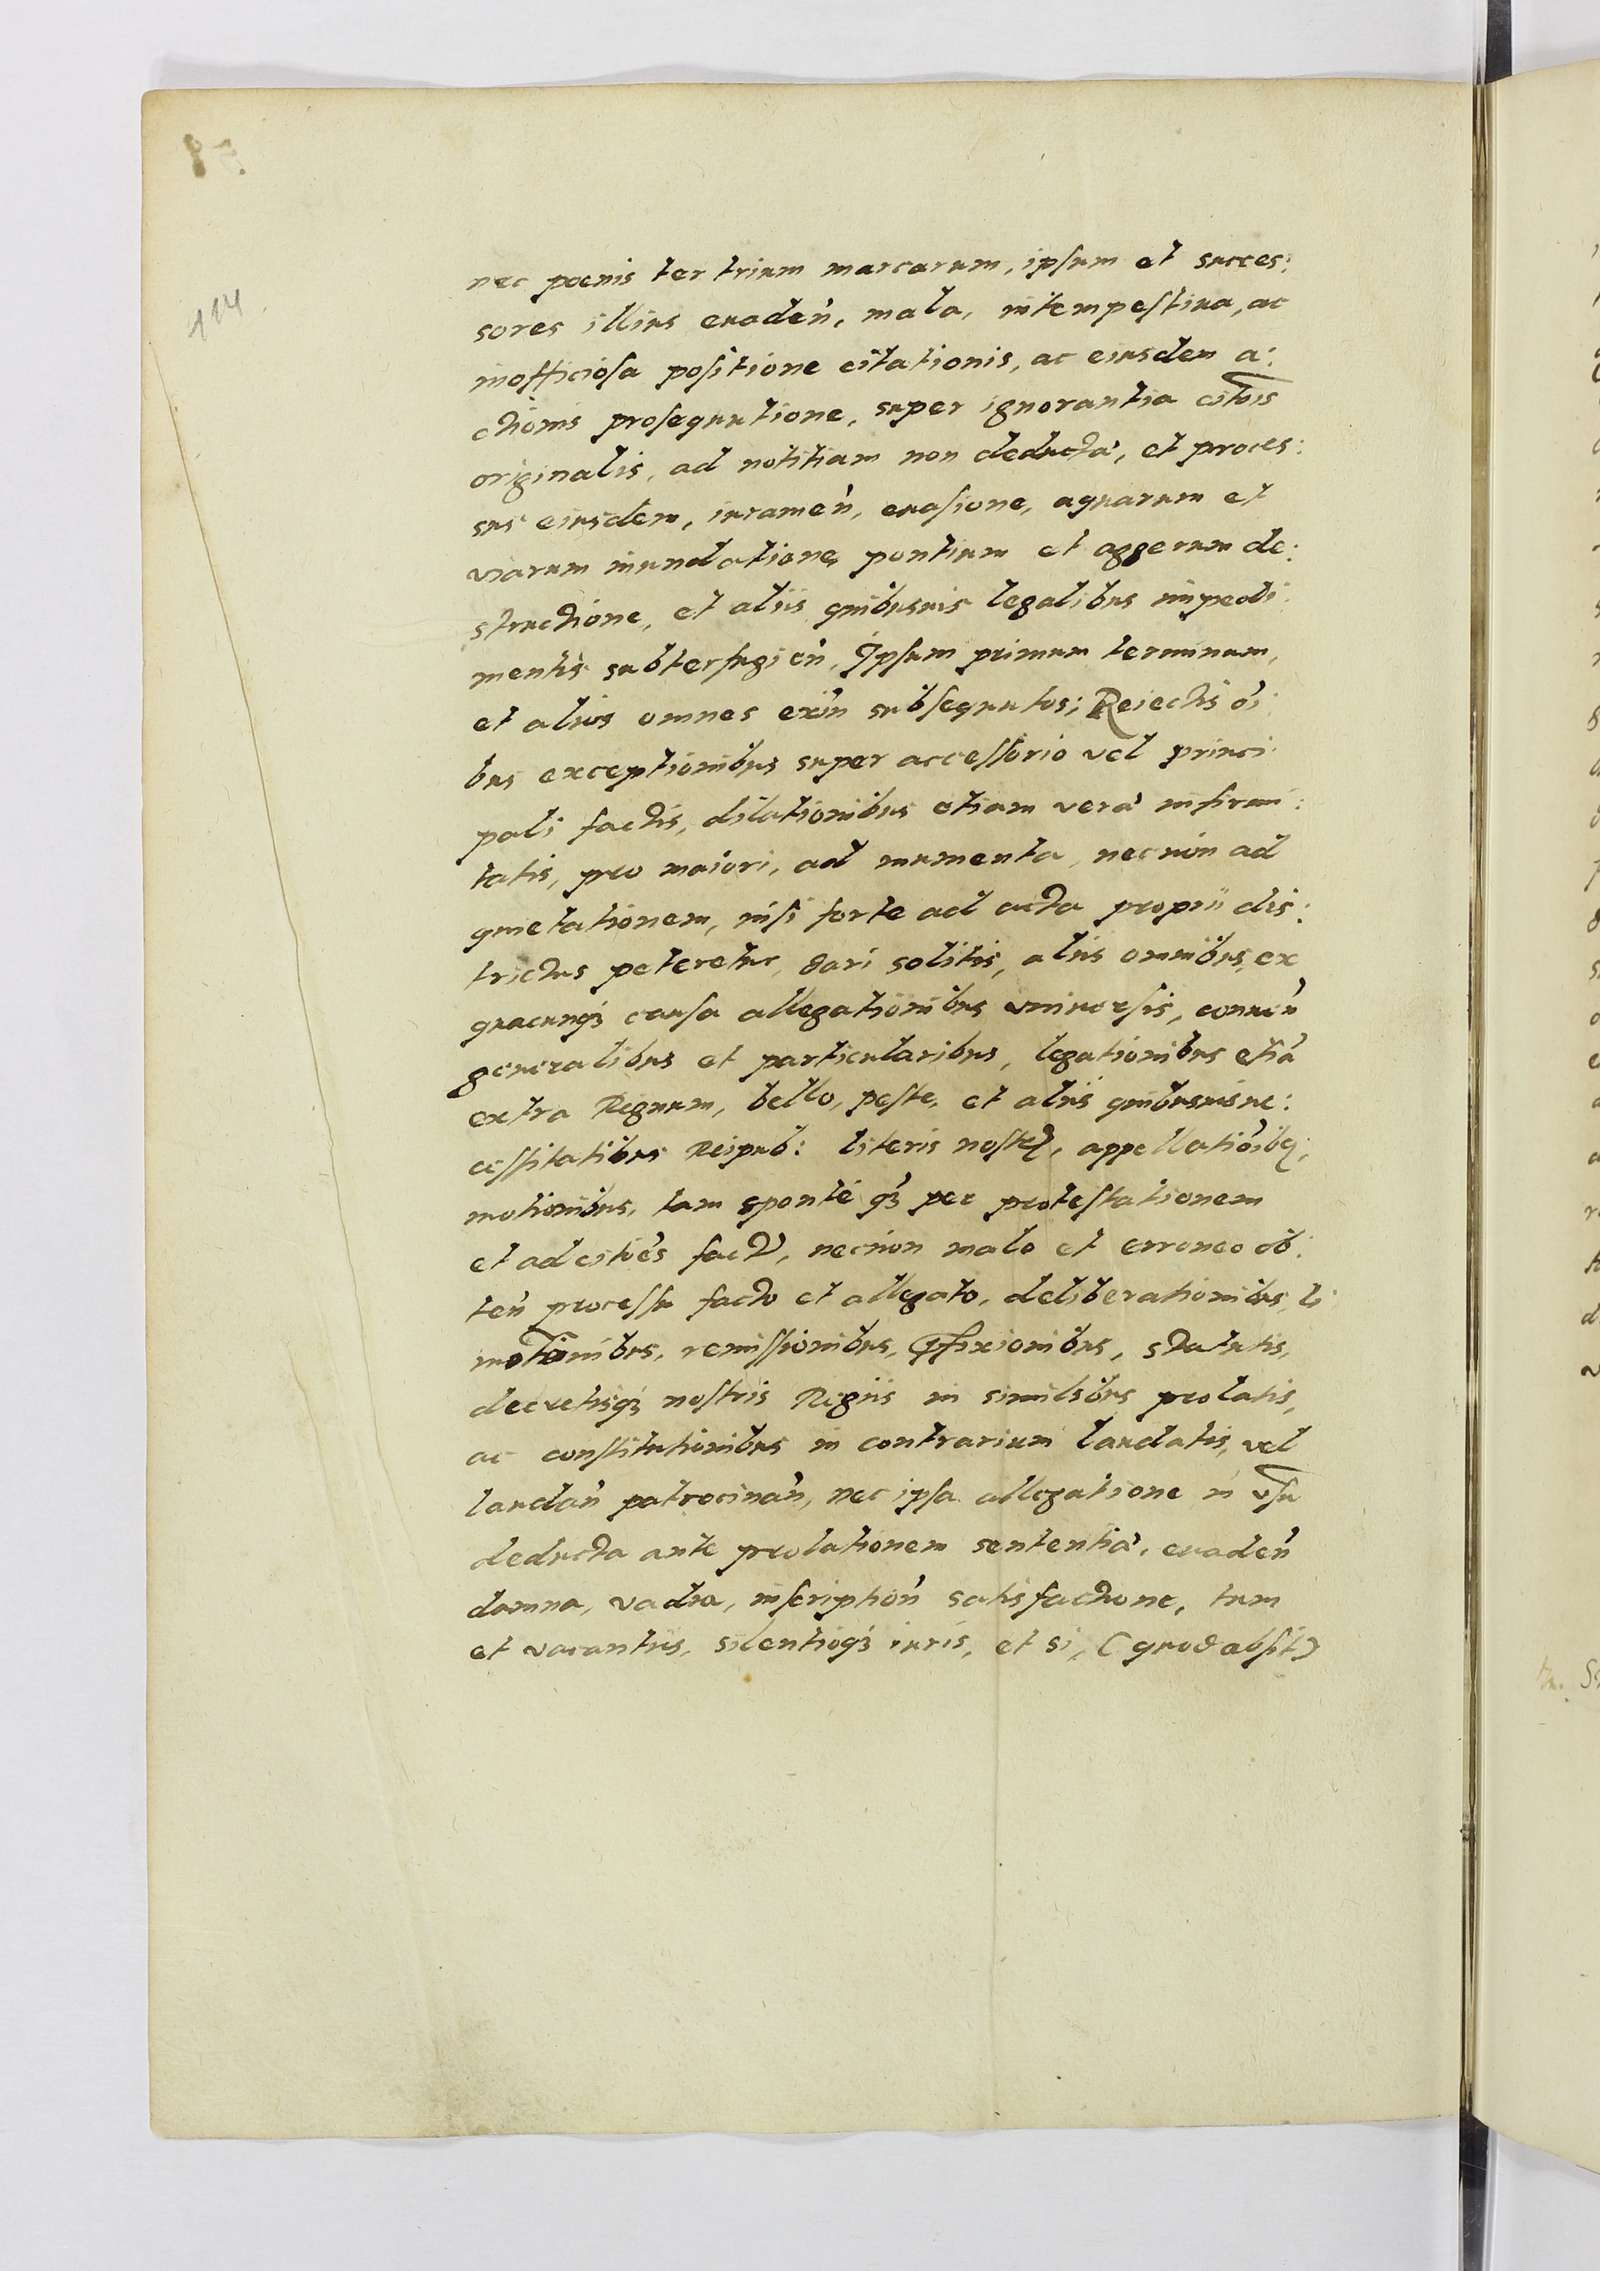 114
nec poenis ter trium marcarum, ipsum et succes:
sores illius euaden̄, mala, intempestiua, ac
inofficiosa positione citationis, ac eiusdem a:
ctionis prosequutione, super ignorantia citōis
originalis, ad notitiam non deducta, et proces:
sus eiusdem, iuramen̄, euasione, aquarum et
viarum inundatione, pontium et aggerum de:
structione, et aliis quibusuis legalibus impedi:
mentis subterfugien̄, Ipsum primum terminum,
et alios omnes exin̄ subsequutos; Reiectis oī:
bus exceptionibus super accessorio vel princi:
pali factis, dilationibus etiam vera infirmi:
tatis, pro maiori, ad munimenta, necnon ad
quietationem, nisi forte ad acta proprii dis:
trictus peteretur, dari solitis, aliis omnibus, ex
quacunqʒ causa allegationibus vniuersis, conuen̄
generalibus et particularibus, legationibus etiā
extra Regnum, bello, peste, et aliis quibusuis ne:
cessitatibus Reipub: literis nostꝭ, appellatiōibꝫ,
motionibus, tam sponte qʒ per protestationem
et ad citōes fact̄, necnon malo et erroneo ob:
ten̄ processu facto et allegato, deliberationibus, li
motionibus, remissionibus, p̄fixionibus, statutis,
decretisqʒ nostris Regiis in similibus prolatis,
ac constitutionibus in contrarium laudatis, vel
laudan̄ patrocinan̄, nec ipsa allegatione in vsu
deducta ante prolationem sententiā, euaden̄
damna, vadia, inscription̄ satisfactione, tum
et vacantiis, silentioqʒ iuris, et si, (quod absit)